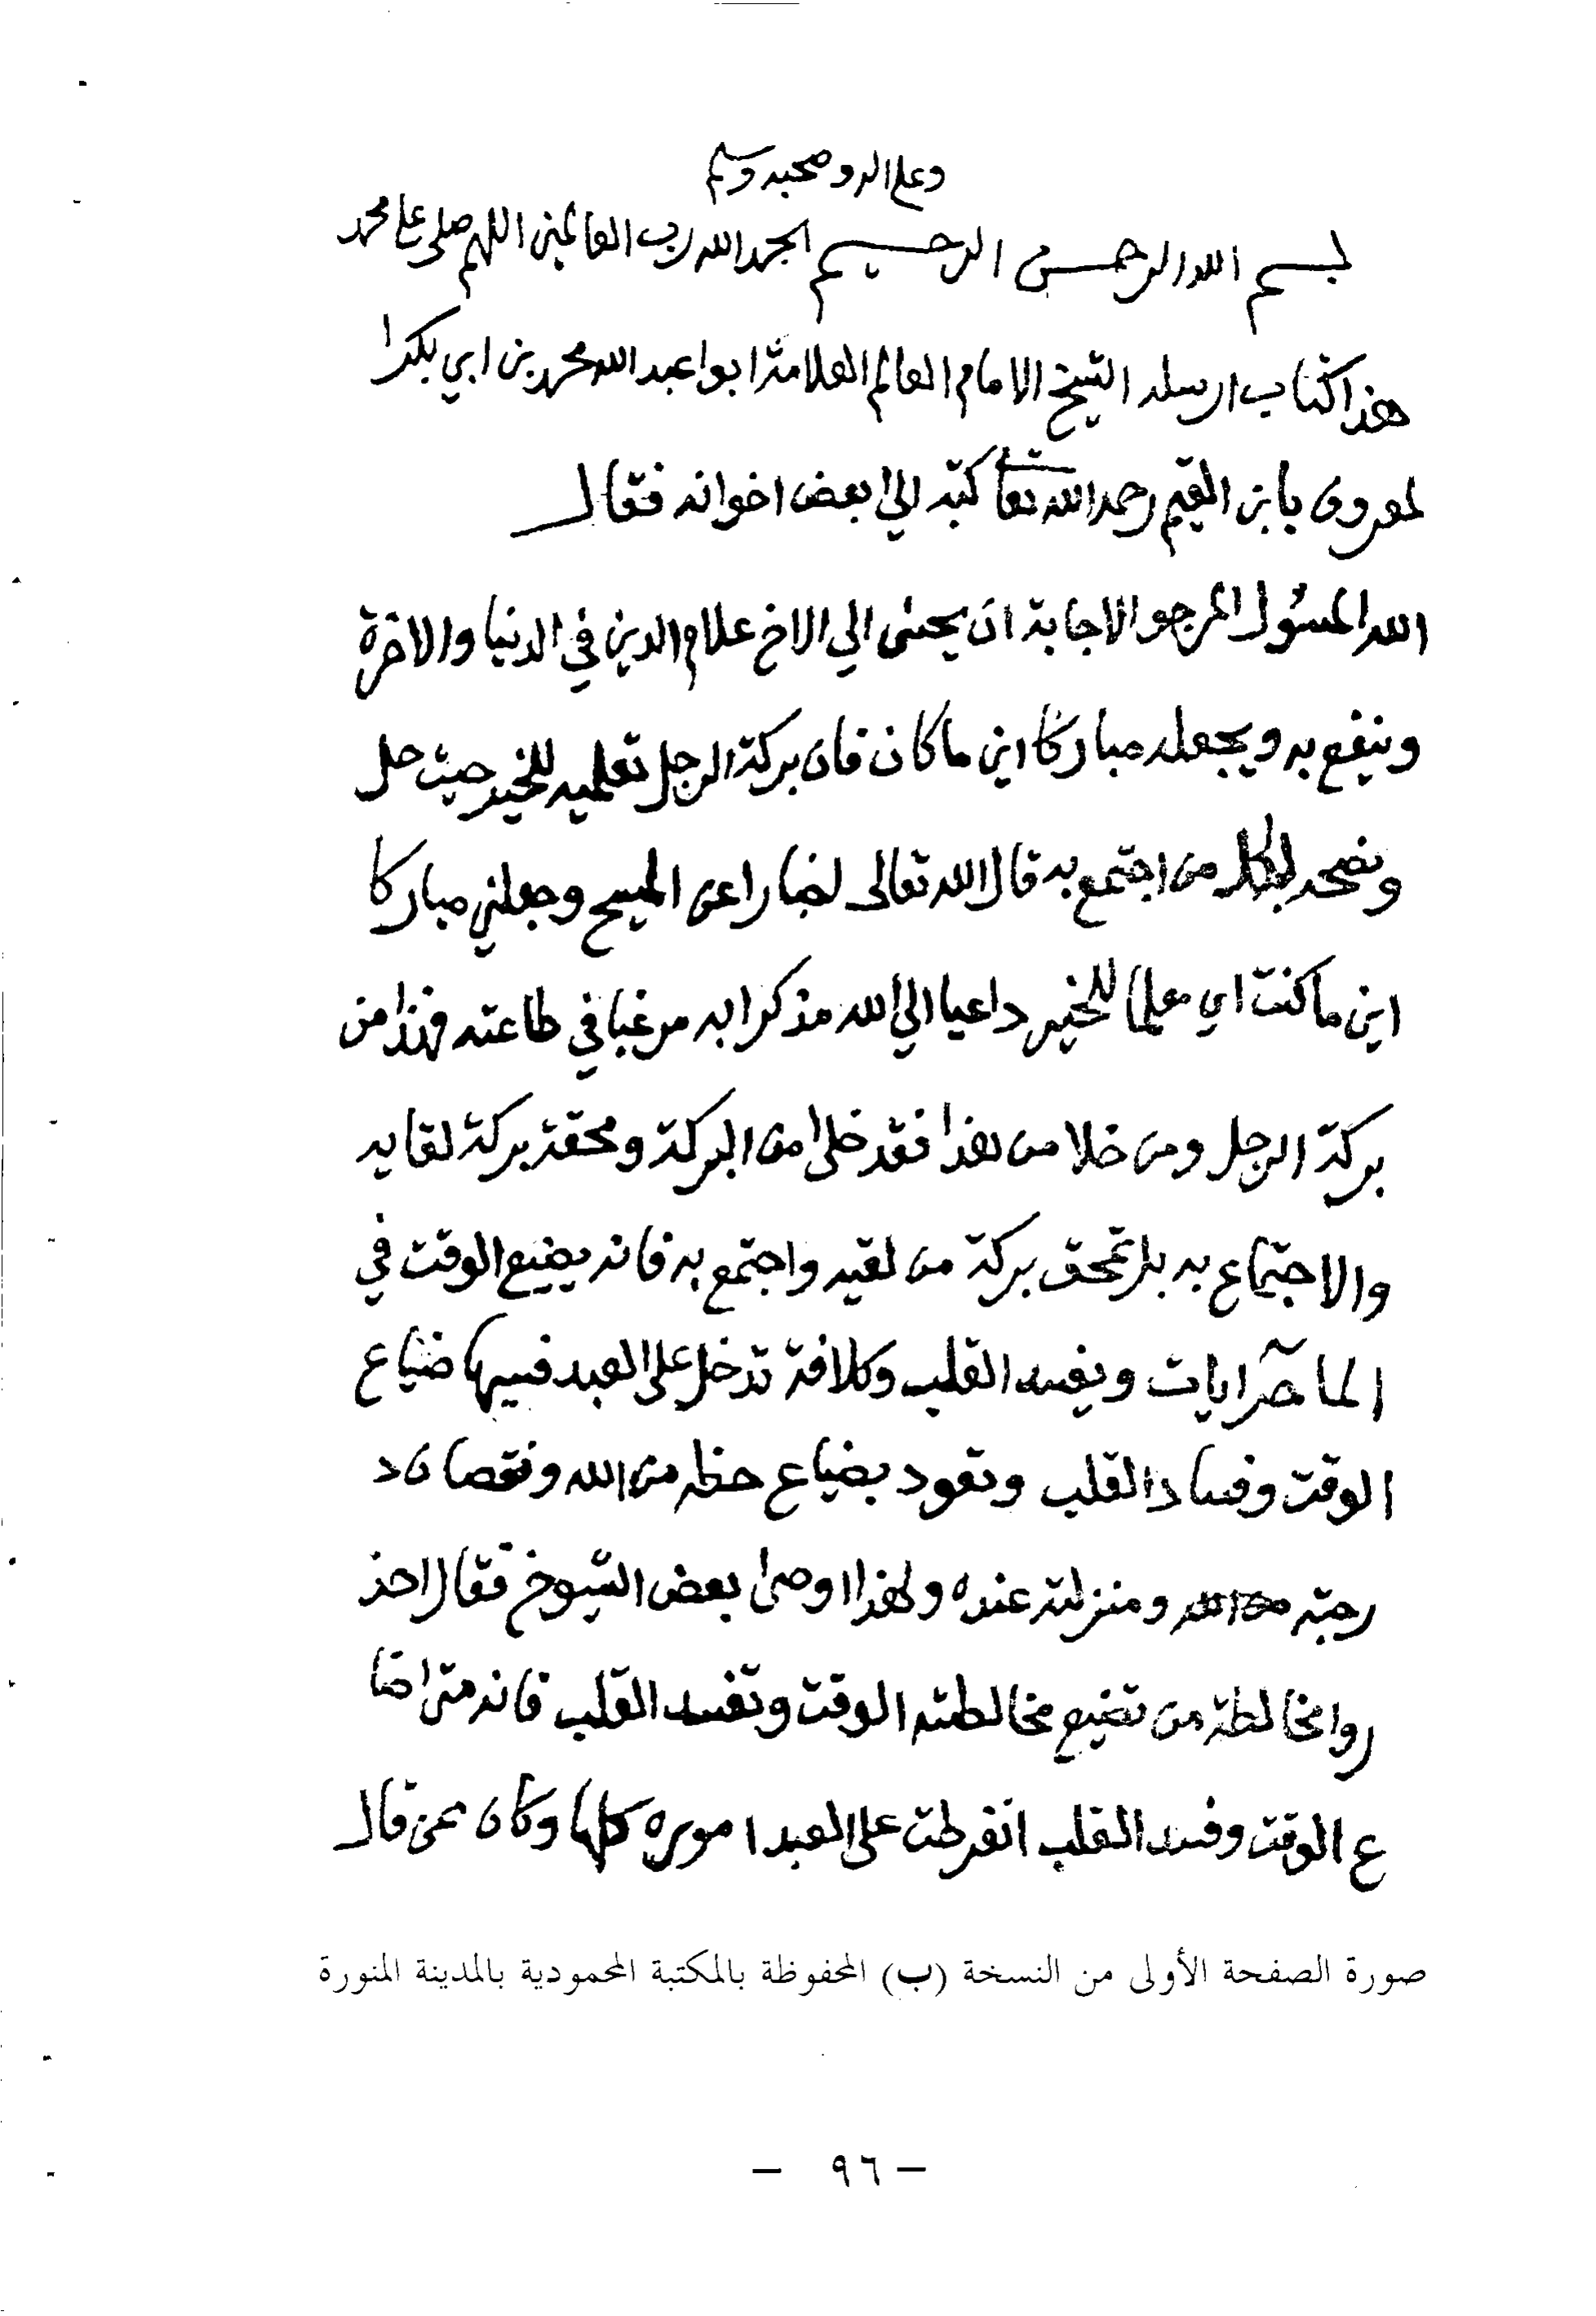 وعلى اله وصحبه وسلم
بسم الله الرحمن الرحيم الحمد الله رب العالمين اللهم صلى على محمد
هذا كتاب ارسله الشيخ الامام العالم العلامة ابوا عبد الله محمد بن ابي بكر ا
لمعروف بابن القيم رحمه الله تعا كتبه الى بعض اخوانه فقال
الله المسئول المرجو الاجابة ان يحسن الي الاخ علام الدين في الدنيا والاخرة
وينفع به ويجعله مباركا اين ما كان فان بركة الرجل تعلميه للخير حيث حل
ونصحه لكل من اجتمع به قال الله تعالى اخبارا عن المسيح وجعلني مباركا
اين ما كنت اي معلما للخير داعيا الي الله مذكرا به مرغبا في طاعته فهذا من
بركة الرجل ومن خلا من هذا فقد خلى من البركة ومحقة بركة لقايه
والاجتماع به بل تمحق بركة من لقيه واجتمع به فانه يضيع الوقت في
الماجرايات ويفسد القلب وكل افة تدخل على العبد فسببها ضياع
الوقت وفساد القلب وتعود بضياع حظه من الله ونقصان د
رجته ومنزلته عنده ولهذا اوصى بعض الشيوخ فقال احذ
روا مخالطة من تضيع مخالطته الوقت وتفسد القلب فانه متى اضا
ع الوقت وفسد القلب انفرطت على العبد اموره كلها وكان ممن قال
صورة الصفحة الأولى من النسخة (ب) المحفوظة بالمكتبة المحمودية بالمدينة المنورة
– ٩٦ –